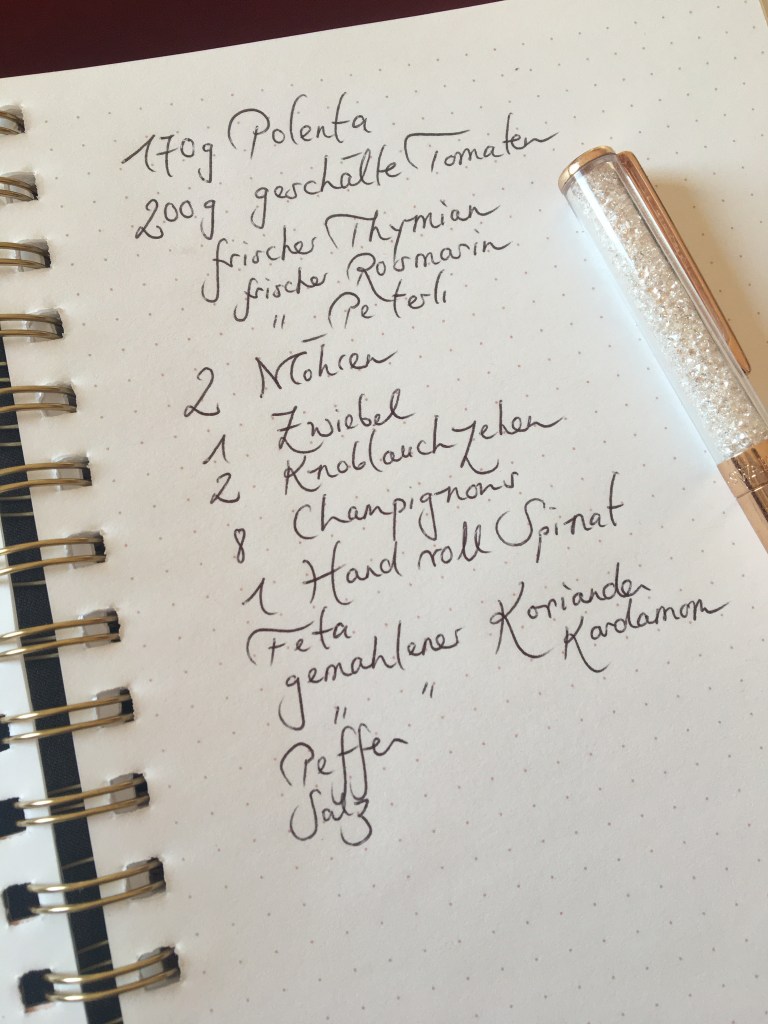 170g Polenta
200g geschälte Tomaten
frischer Thymian
frischer Rosmarin
" Peterli
2 Möhren
1 Zwiebel
2 Knoblauchzehen
8 Champignons
1 Hand voll Spinat
Feta
gemahlener Koriander
" " Kardamom
Peffer
Salz